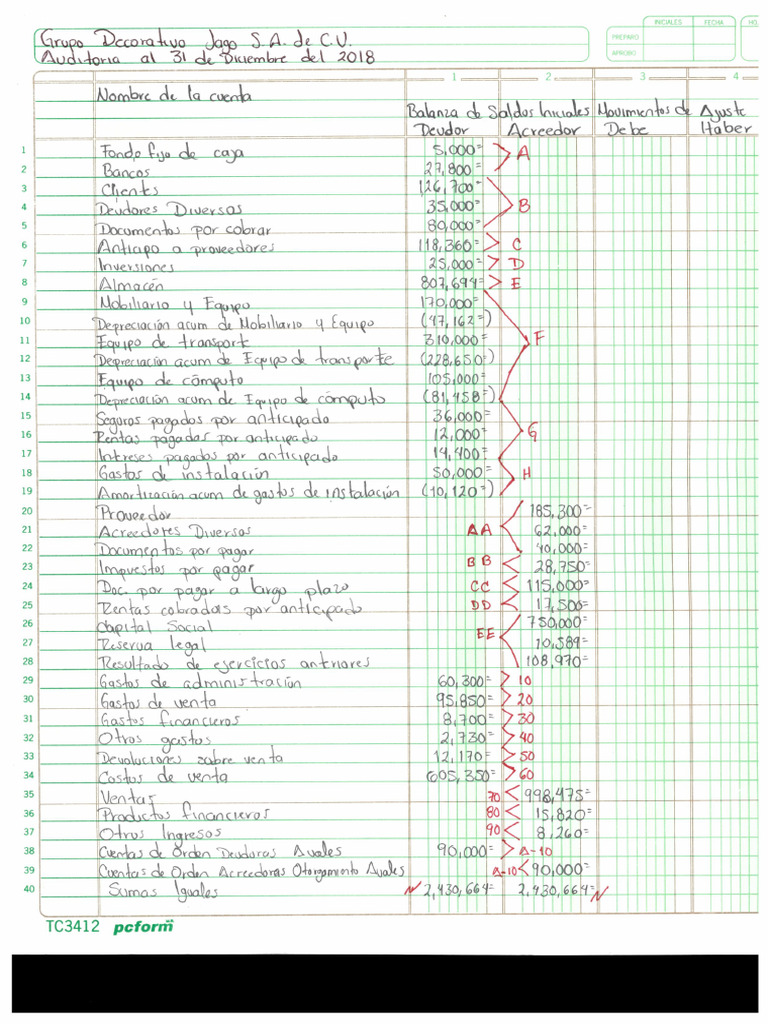 Grupo Decorativo Jago S.A. de C.V.
Auditoria al 31 de Diciembre del 2018
INICIALES FECHA HO
PREPARO
APROBO
1 2 3 4
Nombre de la cuenta
Balanza de Saldos Iniciales Movimientos de Ajuste
Deudor Acreedor Debe Haber
1 Fondo fijo de caja 5,000= A
2 Bancos 27,800=
3 Clientes 126,700=
4 Deudores Diversos 35,000= B
5 Documentos por cobrar 80,000=
6 Anticipo a proveedores 118,360= C
7 Inversiones 25,000= D
8 Almacén 807,694= E
9 Mobiliario y Equipo 170,000=
10 Depreciación acum de Mobiliario y Equipo (47,162=)
11 Equipo de transporte 310,000= F
12 Depreciación acum de Equipo de transporte (228,650=)
13 Equipo de cómputo 105,000=
14 Depreciación acum de Equipo de cómputo (81,458=)
15 Seguros pagados por anticipado 36,000=
16 Rentas pagadas por anticipado 12,000= G
17 Intereses pagados por anticipado 14,400=
18 Gastos de instalación 50,000= H
19 Amortización acum de gastos de instalación (10,120=)
20 Proveedor 185,300=
21 Acreedores Diversos AA 62,000=
22 Documentos por pagar 40,000=
23 Impuestos por pagar BB 28,750=
24 Doc. por pagar a largo plazo CC 115,000=
25 Rentas cobradas por anticipado DD 17,500=
26 Capital Social 750,000=
27 Reserva legal EE 10,589=
28 Resultado de ejercicios anteriores 108,970=
29 Gastos de administración 60,300= 10
30 Gastos de venta 95,850= 20
31 Gastos financieros 8,700= 30
32 Otros gastos 2,730= 40
33 Devoluciones sobre venta 12,170= 50
34 Costos de venta 605,350= 60
35 Ventas 70 998,475=
36 Productos financieros 80 15,820=
37 Otros Ingresos 90 8,260=
38 Cuentas de Orden Deudoras Avales 90,000= A-10
39 Cuentas de Orden Acreedoras Otorgamiento Avales A-10 90,000=
40 Sumas Iguales 2,430,664= 2,430,664=
TC3412 pcform